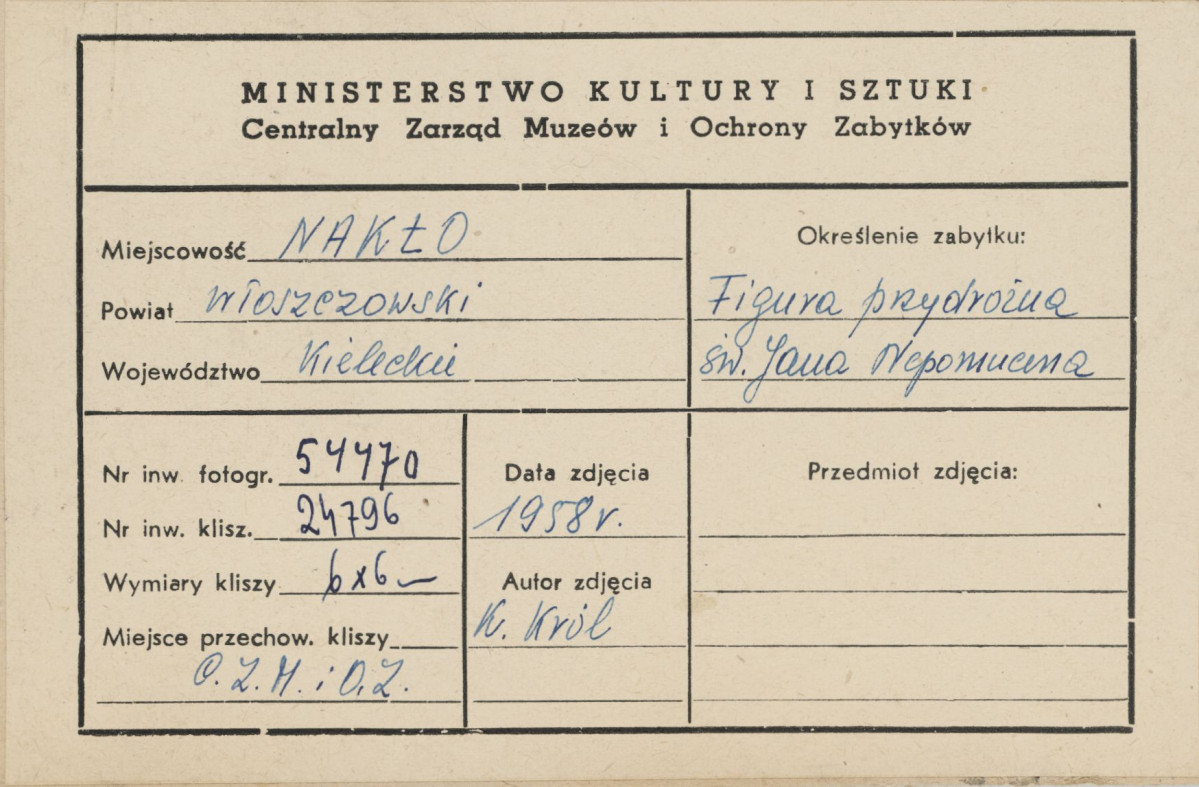 MINISTERSTWO KULTURY I SZTUKI
Centralny Zarząd Muzeów i Ochrony Zabytków
Miejscowość NAKŁO
Powiat Włoszczowski
Województwo Kieleckie
Określenie zabytku:
Figura przydrożna
św. Jana Nepomucena
Nr inw. fotogr. 54470
Nr inw. klisz. 24796
Wymiary kliszy 6x6
Miejsce przechow. kliszy
C.Z.M. i O.Z.
Data zdjęcia
1958 r.
Autor zdjęcia
K. Król
Przedmiot zdjęcia: